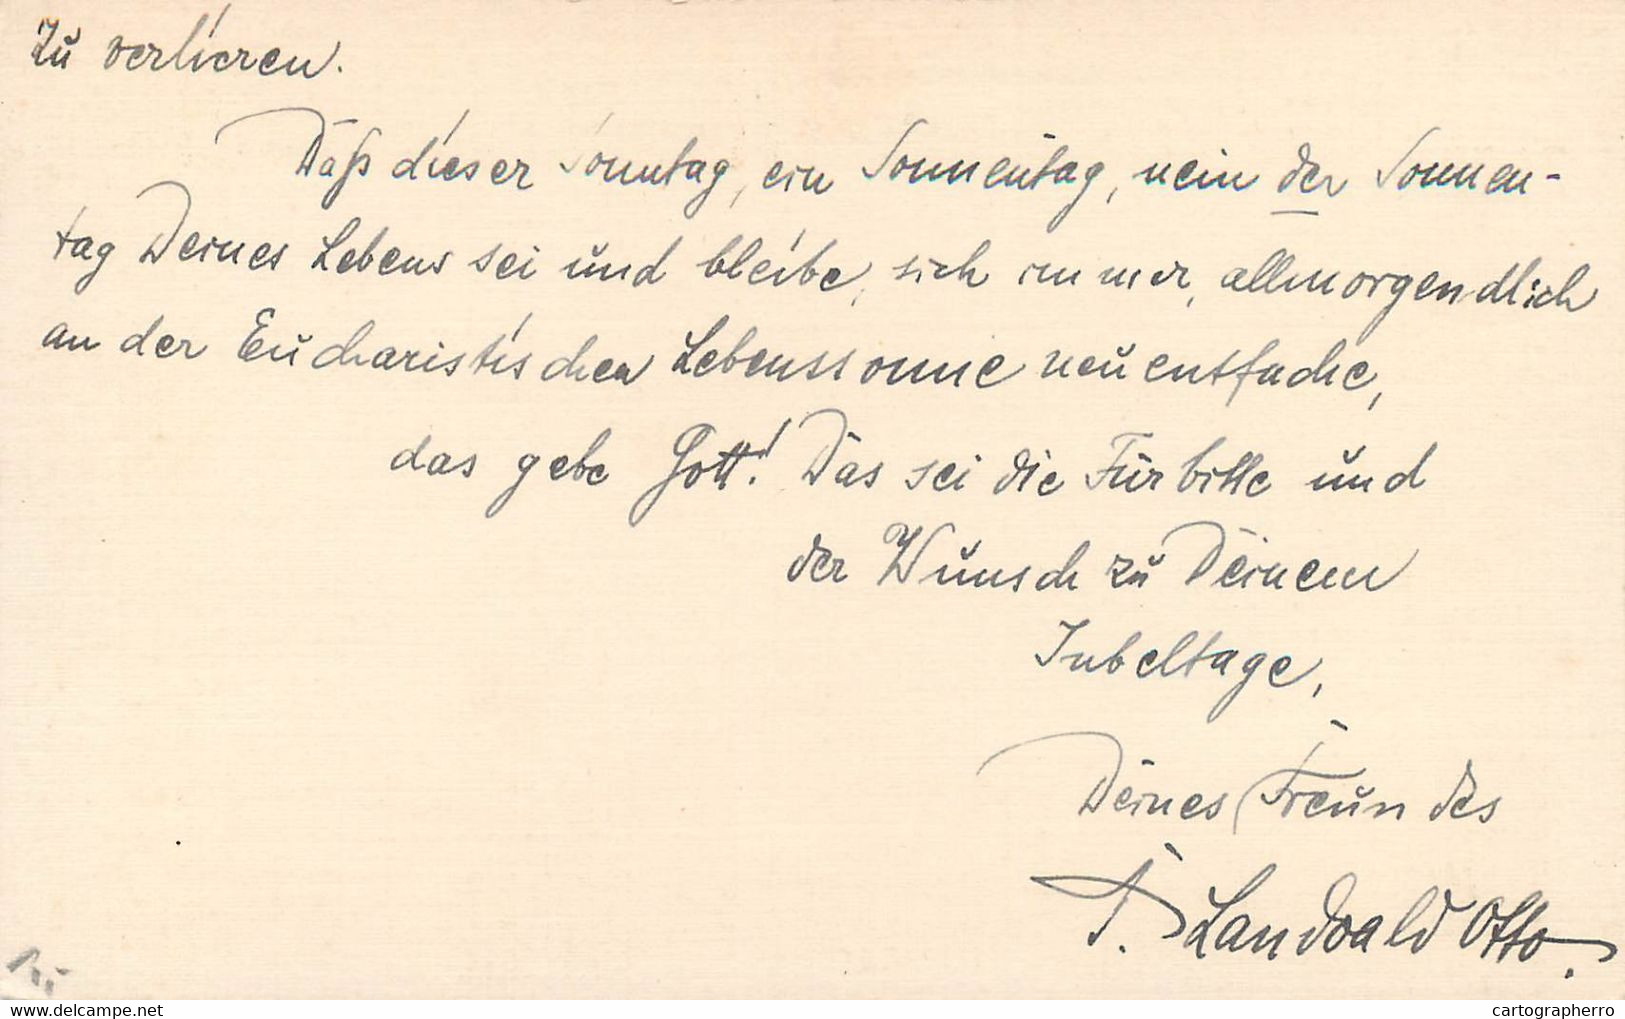 zu verlieren.
Daß dieser Sonntag, ein Sonnentag, nein der Sonnen-
tag Deines Lebens sei und bleibe, sich immer, allmorgendlich
an der Eucharistischen Lebenssonne neu entfache,
das gebe Gott! Das sei die Fürbitte und
der Wunsch zu Deinem
Jubeltage,
Deines Freundes
P. Landoald Otto.
cartographerro